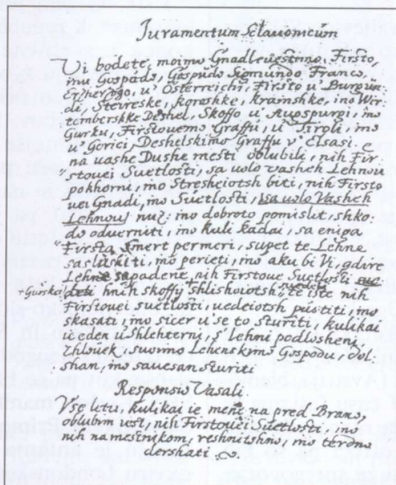 Juramentum Sclavonicum
Vi bodete, moimu Gnadleuestnmo, Firsto,
mu Gospodo, Gospudo Sigmundo Franco,
Erzherzogo, u' Osterreichi, Firsto u' Burgun:
di, Steyreske, koroshke, krainshke, ino Wir
temberske Deshel, Skoffo u' Auospurgi, ino
Gurku, Firstouemo Graffu, u' Tiroli, ino
u' Gorici, Deshelskimo Graffu v' Elsasi.
na uashe Dushe mesti oblubili, nih Fir
stouei Suetlosti, sa uolo vasheh Lehnou
pokhorni, ino Stresheiotsh biti, nih Firsto
uei Gnadi, ino Suetlosti, sa uolo Vasheh
Lehnou, nuz, ino dobroto pomislit, shko:
do oduerniti, ino kuli kadai, sa eniga
Firsta Smert permeri, supet te Lehne
sashishiti, ino perieti, ino aku bi Vi, gdire
Lehne sapadene, nih Firstoue Suetlosti
+ Gurskei hnih skoffy shlishoiotsh, te iste nih
Firstouei suetlosti, uedeiotsh pustiti, ino
skasati, ino sicer u'se to sturiti, kulikai
ie eden u'shlehterni, s' lehni podlosheni,
zhlouik, suoimo Lehenskimo Gospodu, dol
shan, ino sauesan sturiti
Responsio Vasali.
Vse letu, kulikai ie mene na pred Brano,
oblubim iest, nih Firstouei Suetlosti, ino
nih namestnikom, reshnitshno, ino terdno
dershati